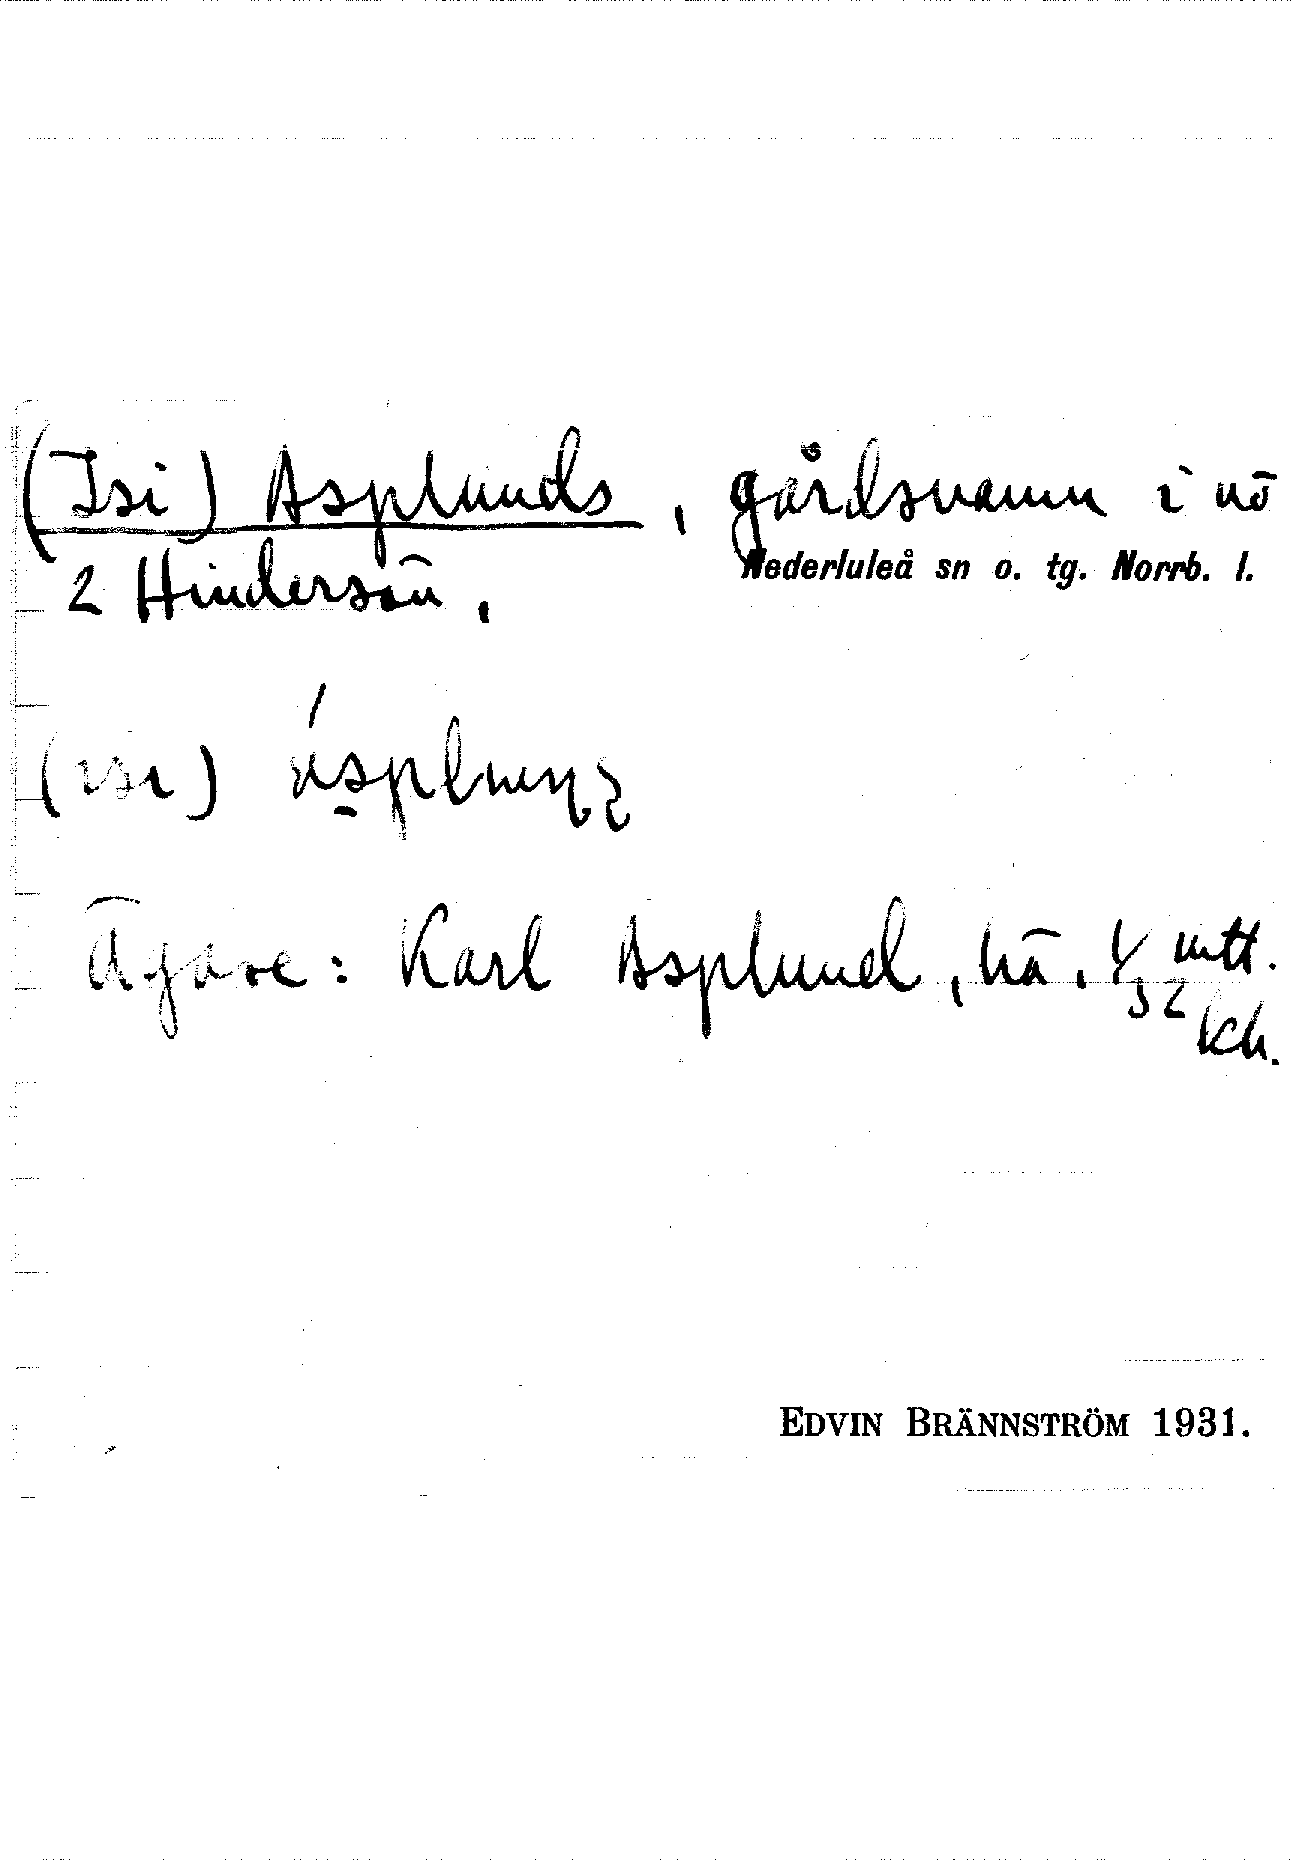 (Isi) Asplunds, gårdsnamn i nö
2 Hindersön.
Nederluleå sn o. tg. Norrb. l.
(isi)
Ägare: Karl Asplund, hä. 1/32 mtl.
kh.
EDVIN BRÄNNSTRÖM 1931.